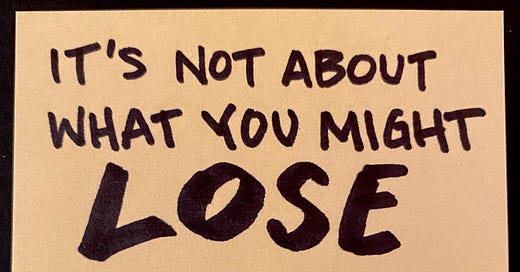 IT'S NOT ABOUT
WHAT YOU MIGHT
LOSE